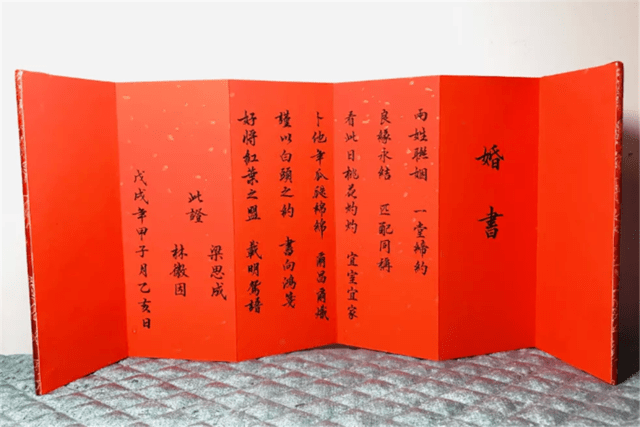 婚書
兩姓聯姻 一堂締約
良緣永結 匹配同稱
看此日桃花灼灼 宜室宜家
卜他年瓜瓞綿綿 爾昌爾熾
謹以白頭之約 書向鴻箋
好將紅葉之盟 載明鴛譜
此證
梁思成
林徽因
戊戌年甲子月乙亥日